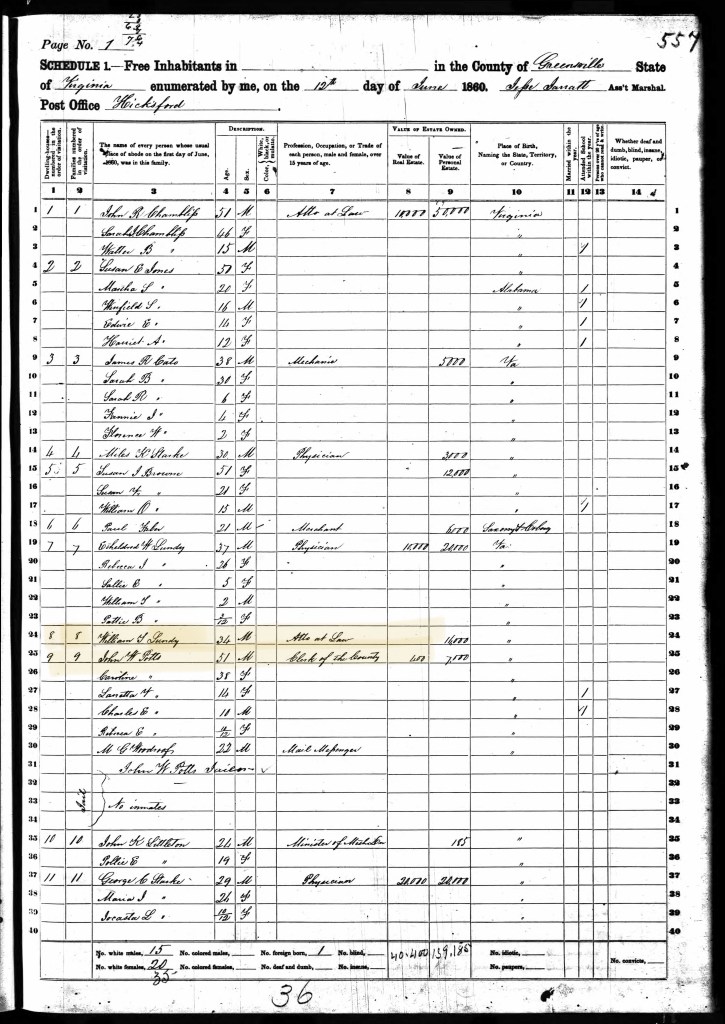 Page No. 1
557
SCHEDULE 1.—Free Inhabitants in in the County of Greensville State
of Virginia enumerated by me, on the 12th day of June 1860. Jesse Jarratt Ass't Marshal.
Post Office Hicksford
Dwelling-houses—numbered in the order of visitation.
Families numbered in the order of visitation.
The name of every person whose usual place of abode on the first day of June, 1860, was in this family.
DESCRIPTION.
Age.
Sex.
Color, White, black, or mulatto.
Profession, Occupation, or Trade of each person, male and female, over 15 years of age.
VALUE OF ESTATE OWNED.
Value of Real Estate.
Value of Personal Estate.
Place of Birth, Naming the State, Territory, or Country.
Married within the year.
Attended School within the year.
Persons over 20 y'rs of age who cannot read & write.
Whether deaf and dumb, blind, insane, idiotic, pauper, or convict.
1 2 3 4 5 6 7 8 9 10 11 12 13 14
1 1 1 John R Chambliss 51 M Atto at Law 50,000 Virginia 1
2 Sarah J Chambliss 46 F " 2
3 Walter B " 15 M " 1 3
4 2 2 Susan C Jones 50 F " 4
5 Martha S " 20 F Alabama 1 5
6 Winfield S " 16 M " 1 6
7 E " 14 F " 1 7
8 Harriet A " 12 F " 1 8
9 3 3 James R Cato 38 M Mechanic 5000 Va 9
10 Sarah B " 30 F " 10
11 Sarah R " 6 F " 11
12 Fannie J " 4 F " 12
13 Florence W " 2 F " 13
14 4 4 Miles K Starke 30 M Physician 3000 " 14
15 5 5 Susan J Browne 51 F 12,000 " 15
16 Susan F " 21 F " 16
17 William O " 15 M " 1 17
18 6 6 Paul 21 M Merchant 6000 18
19 7 7 W Lundy 37 M Physician 20,000 Va 19
20 Rebecca J " 26 F " 20
21 Sallie E " 5 F " 21
22 William T " 2 M " 22
23 Pattie B " F " 23
24 8 8 William T Lundy 34 M Atto at Law " 24
25 9 9 John W Potts 51 M Clerk of the County 400 7,000 " 25
26 Caroline " 38 F " 26
27 " 14 F " 1 27
28 Charles E " 10 M " 1 28
29 Rebecca E " F " 29
30 M C Woodroof 22 M Mail Messenger " 30
31 John W Potts Jailor 31
32 32
33 Jail No inmates 33
34 34
35 10 10 John K Littleton 24 M Minister of 185 " 35
36 Pollie E " 19 F " 36
37 11 11 George C Starke 29 M Physician 20,000 20,000 " 37
38 Maria J " 24 F " 38
39 L " F " 39
40 40
No. white males, 15 No. colored males, No. foreign born, 1 No. blind, 40.400 139.185 No. idiotic, No. convicts,
No. white females, 20 No. colored females, No. deaf and dumb, No. insane, No. paupers,
35
36